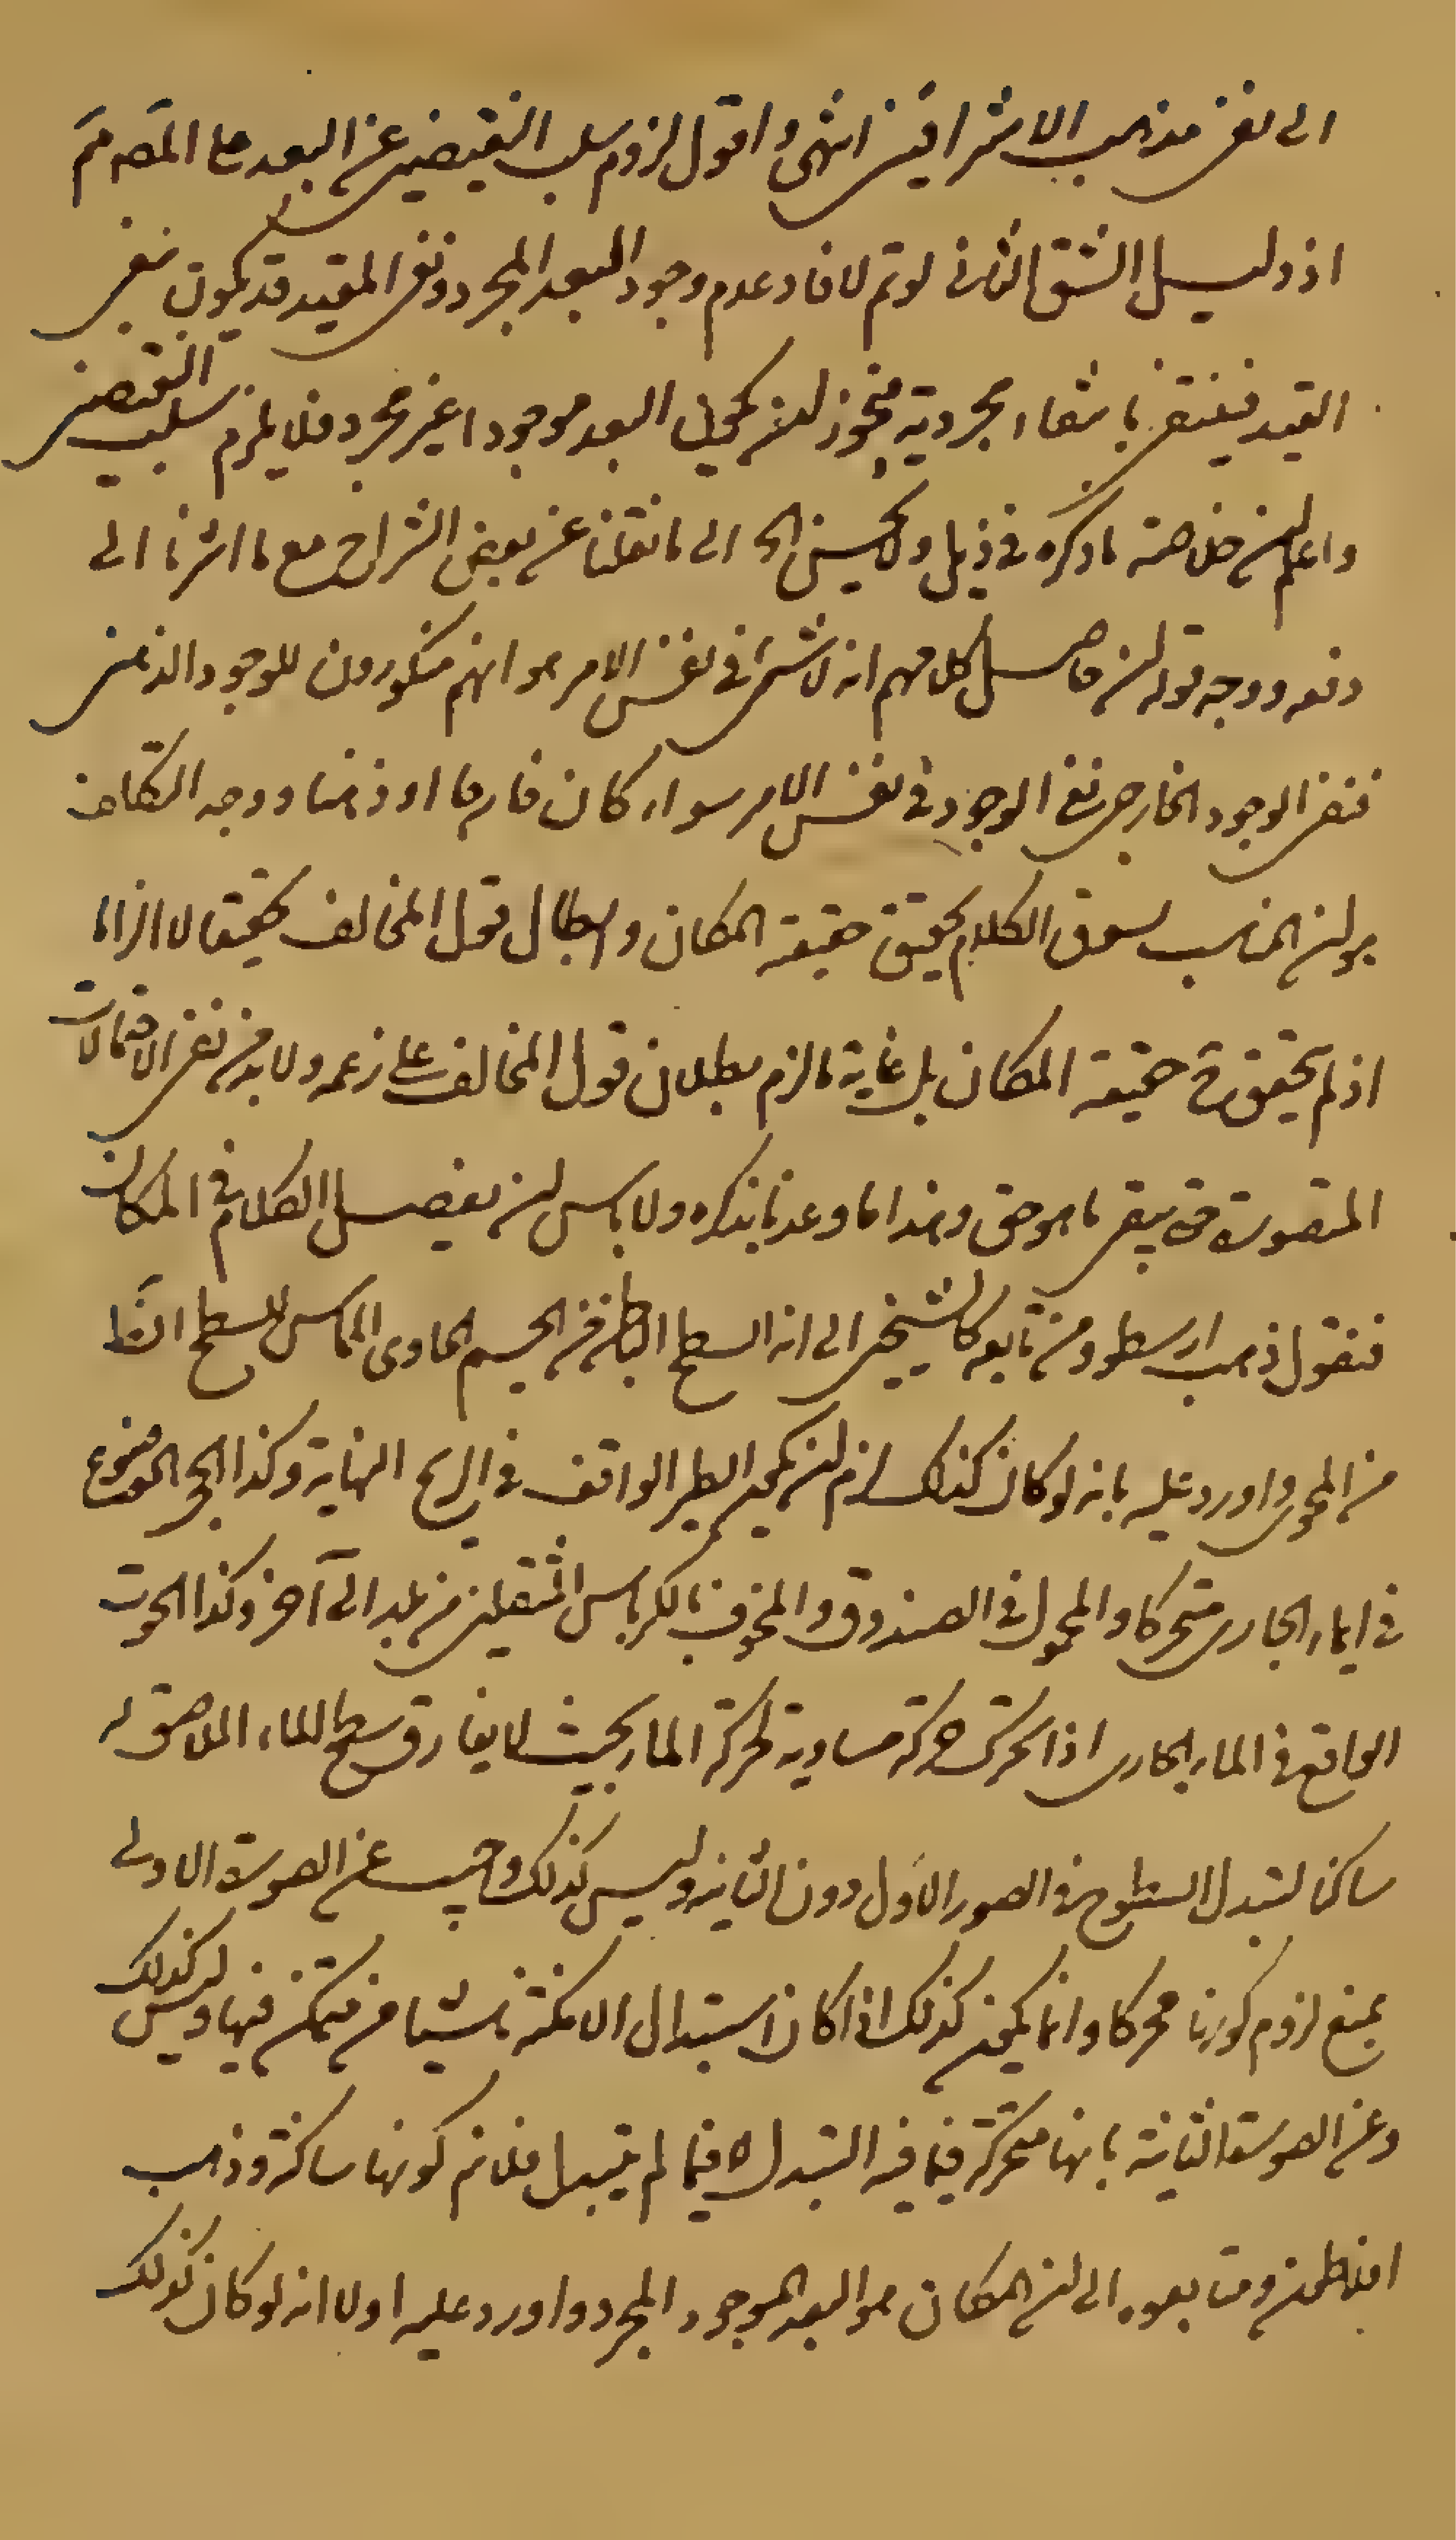 الى نفى مذهب الاشراقيين انتهى واقول لزوم سلب النقيضين عن البعد على المصه مم
اذ دليل الشق الثانى لو تم لافاد عدم وجود البعد المجرد ونفى المقيد قد يكون بنفى
القيد فينتفى بانتفاء مجرديته فيجوز ان يكون البعد موجودا غير مجرد فلا يلزم سلب النقيضين
واعلم ان خلاصة ما ذكره فى ذيل ولا يحسن الخ الى ما نقلنا عن بعض الشراح مع ما اشرنا الى
دفعه ووجه قوله ان حاصل كلامهم انه لا شئ فى نفس الامر هو انهم منكورون للوجود الذهنى
فنفى الوجود الخارجى نفى الوجود فى نفس الامر سواء كان خارجا او ذهنا ووجه التكلف
هو ان المناسب لسوق الكلام تحقيق حقيقة المكان وابطال قول المخالف تحقيقا لا الزاما
اذ لم يتحقق ح حقيقة المكان بل غاية ما لزم بطلان قول المخالف على زعمه ولا بد من نفى الاحتمالات
المتصورة حتى يبقى ما هو حق وهذا ما وعدنا بذكره ولا باس ان نفصل الكلام فى المكان
فنقول ذهب ارسطو ومن تابعه كالشيخين الى انه السطح الباطن من الجسم الحاوى المماس للسطح الظا
من المحوى واورد عليه بانه لو كان كذلك لزم ان يكون الطير الواقف فى الريح الهابة وكذا الحجر الموضوع
فى الماء الجارى متحركا والمحمول فى الصندوق والمحفوف بالكرباس المنتقلين من بلد الى آخر وكذا الحوت
الواقع فى الماء الجارى اذا تحرك حركة مساوية لحركة الماء بحيث لا يفارق سطح الماء الملاصق له
ساكنا لتبدل السطوح فى الصور الاول دون الثانية وليس كذلك واجيب عن الصورة الاولى
بمنع لزوم كونها محركا وانما يكون كذلك اذا كان استبدال الامكنة ناشيا من متمكن فيها وليس كذلك
وعن الصورة الثانية بانها متحركة فيما فيه التبدل لا فيما لم يتبدل فلا نم كونها ساكنة وذهب
افلاطون ومتابعوه الى ان المكان هو البعد الموجود المجرد واورد عليه اولا انه لو كان كذلك